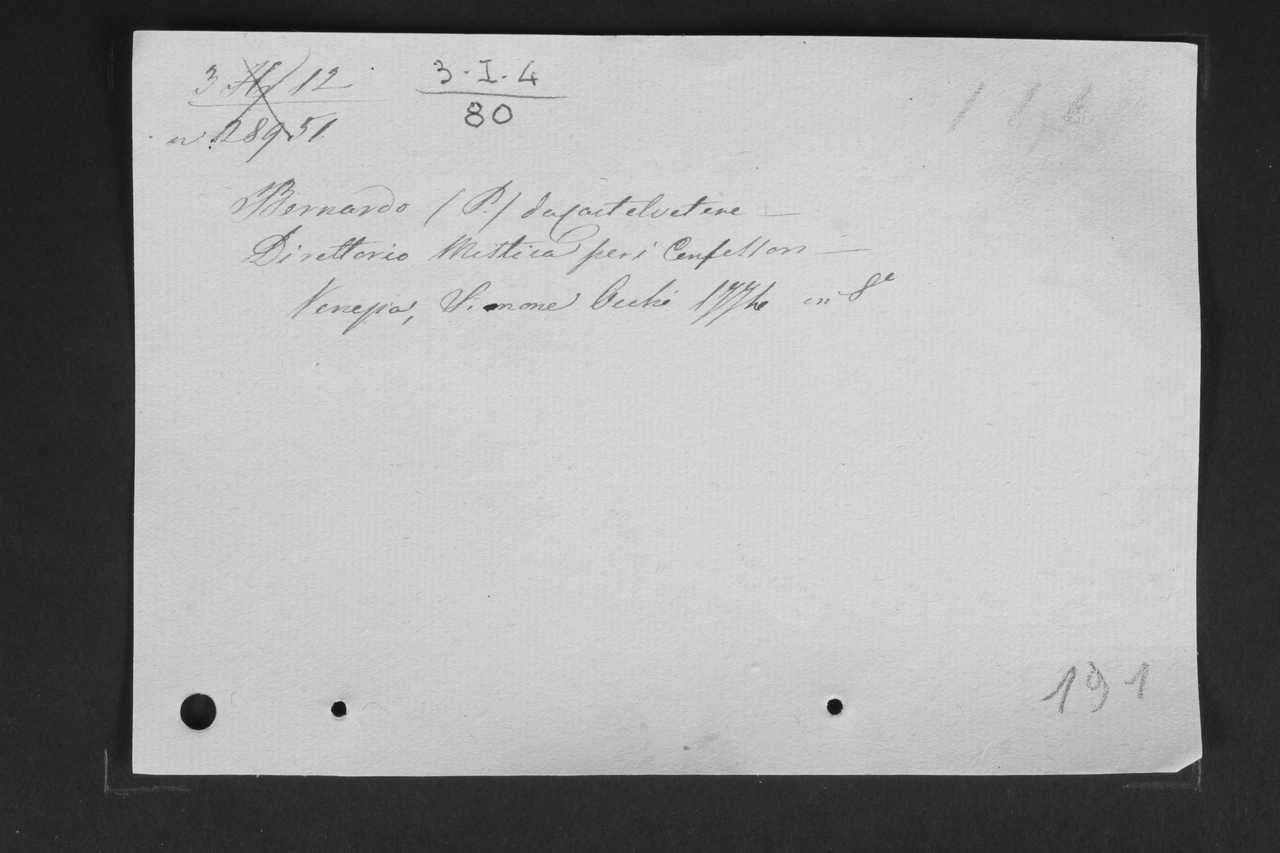 3 12 3-I-4
n. 28951 80
Bernardo (P.) da Castelvetere —
Direttorio Mistico per i Confessori —
Venezia, Simone Occhi 1774 in 8°
191